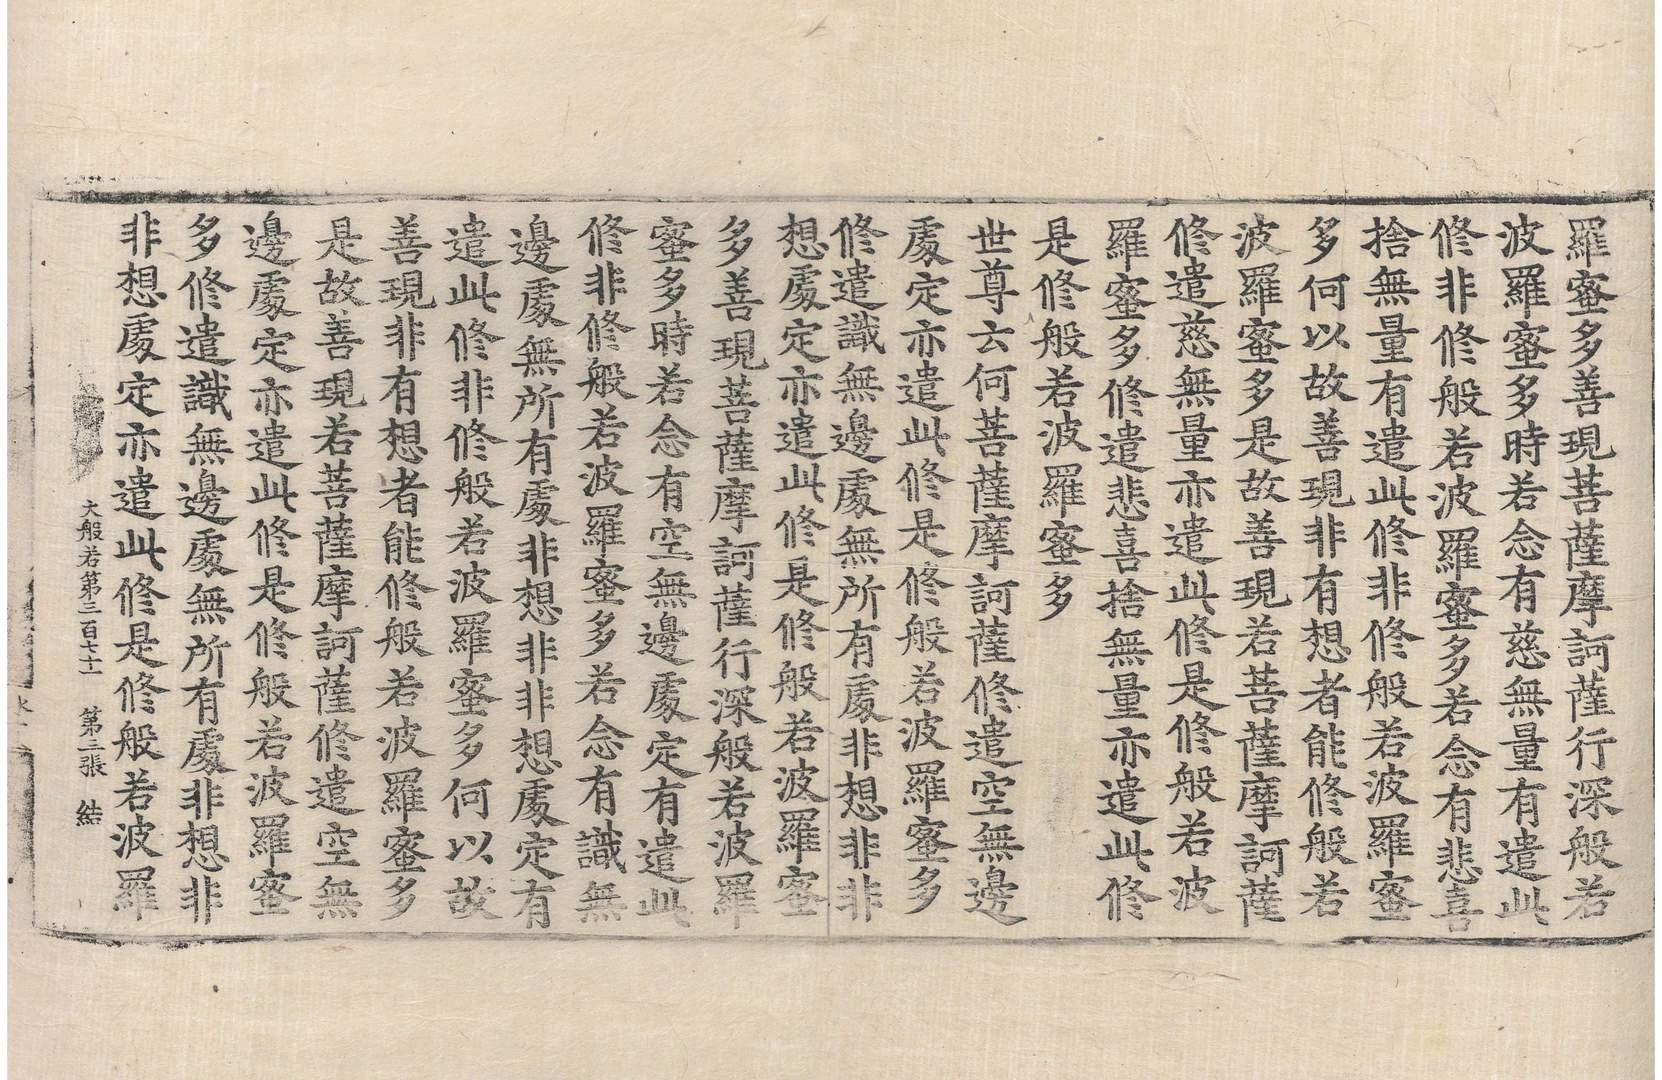 羅蜜多善現菩薩摩訶薩行深般若
波羅蜜多時若念有慈無量有遣此
修非修般若波羅蜜多若念有悲喜
捨無量有遣此修非修般若波羅蜜
多何以故善現非有想者能修般若
波羅蜜多是故善現若菩薩摩訶薩
修遣慈無量亦遣此修是修般若波
羅蜜多修遣悲喜捨無量亦遣此修
是修般若波羅蜜多
世尊云何菩薩摩訶薩修遣空無邊
處定亦遣此修是修般若波羅蜜多
修遣識無邊處無所有處非想非非
想處定亦遣此修是修般若波羅蜜
多善現菩薩摩訶薩行深般若波羅
蜜多時若念有空無邊處定有遣此
修非修般若波羅蜜多若念有識無
邊處無所有處非想非非想處定有
遣此修非修般若波羅蜜多何以故
善現非有想者能修般若波羅蜜多
是故善現若菩薩摩訶薩修遣空無
邊處定亦遣此修是修般若波羅蜜
多修遣識無邊處無所有處非想非
非想處定亦遣此修是修般若波羅
大般若第三百七十一 第二張 結